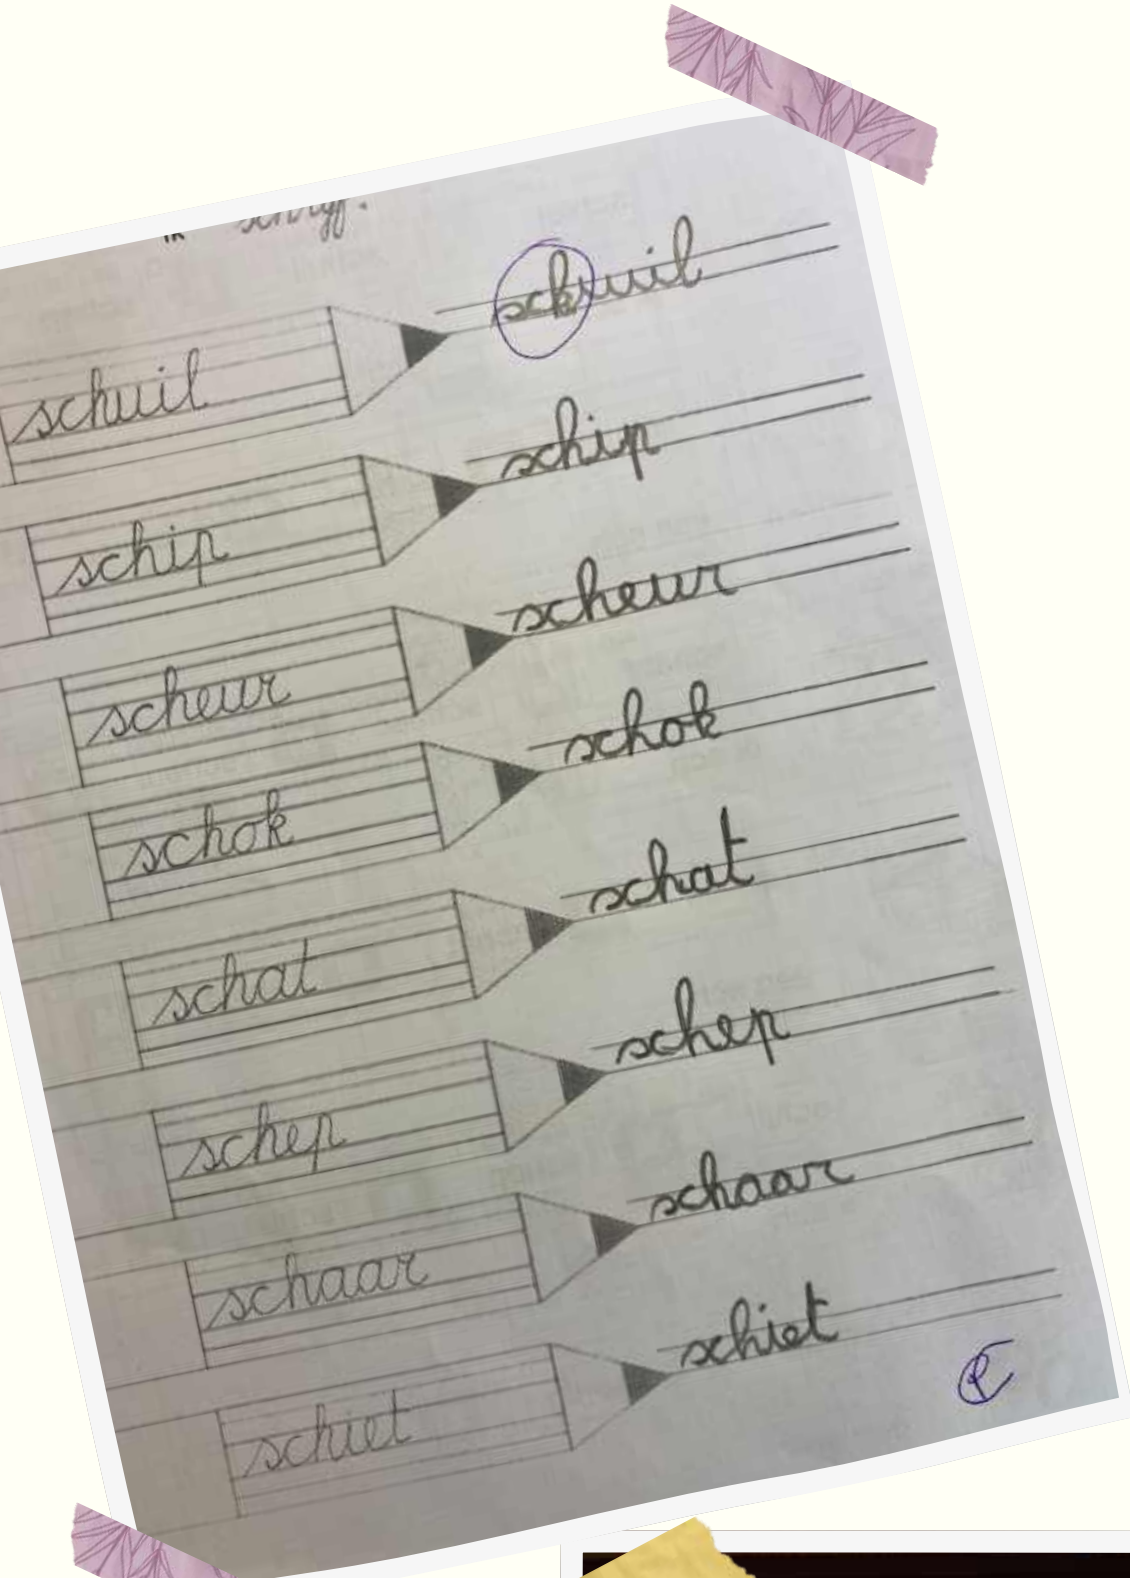 ik schrijf.
schuil schuil
schip schip
scheur scheur
schok schok
schat schat
schep schep
schaar schaar
schiet schiet